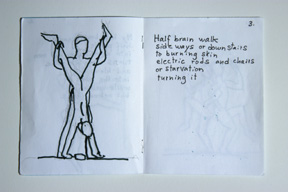 3.
Half brain walk
side ways or downstairs
to burning skin
electric rods and chairs
or starvation
turning it